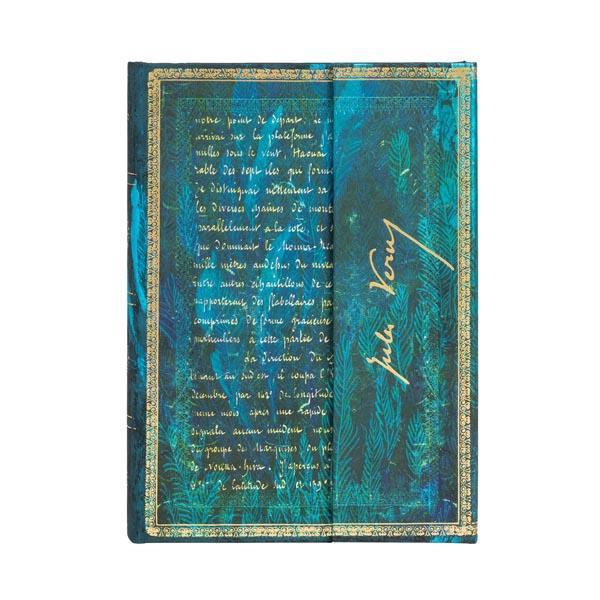 notre point de départ. Le m
arrivai sur la plateforme j'a
milles sous le vent, Haouaï
rable des sept iles que forme
Je distinguai nettement sa
les diverses chaînes de mont
parallèlement à la côte, et s
que dominait le Mouna-Rea
mille mètres audessus du nivea
Entre autres échantillons de ce
rapportèrent des flabellaires, pa
comprimés de forme gracieuse
particuliers à cette partie de
La direction du
au sud-est il coupa l'
décembre par 142° de longitude
même mois, après une rapide
signala aucun incident nous
du groupe des Marquises. à
de Nouka-hiva. J'aperçus à
de latitude sud et 139°
Jules Verne